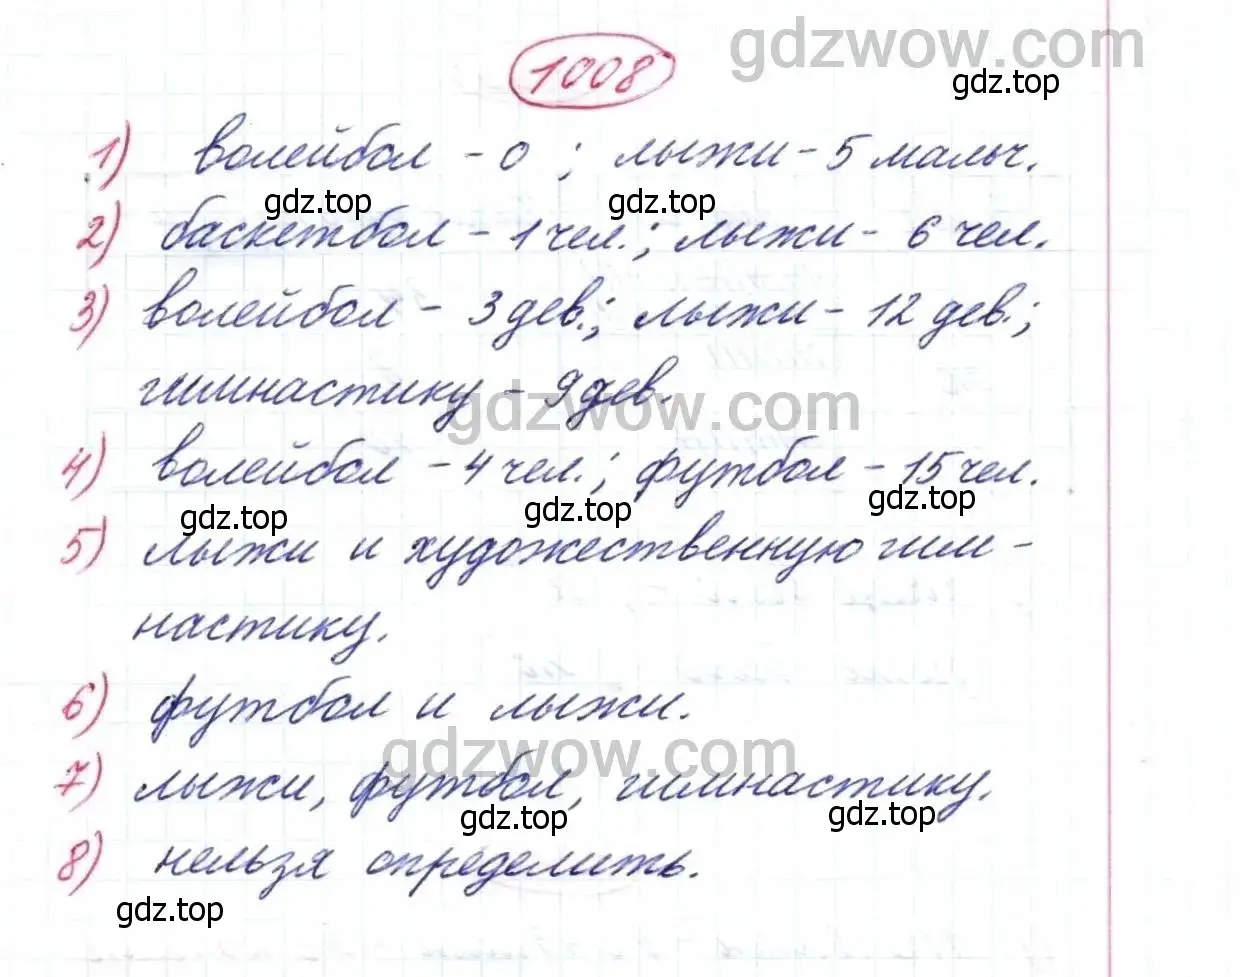 gdzwow.com
1008
gdz.top
1) волейбол - 0 ; лыжи - 5 мальч.
gdz.top gdz.top
2) баскетбол - 1 чел.; лыжи - 6 чел.
3) волейбол - 3 дев.; лыжи - 12 дев.;
гимнастику - 9 дев.
gdzwow.com
4) волейбол - 4 чел.; футбол - 15 чел.
gdz.top gdz.top gdz.top
5) лыжи и художественную гим -
настику.
6) футбол и лыжи.
gdzwow.com
7) лыжи, футбол, гимнастику.
gdz.top gdz.top
8) нельзя определить.
gdz.top